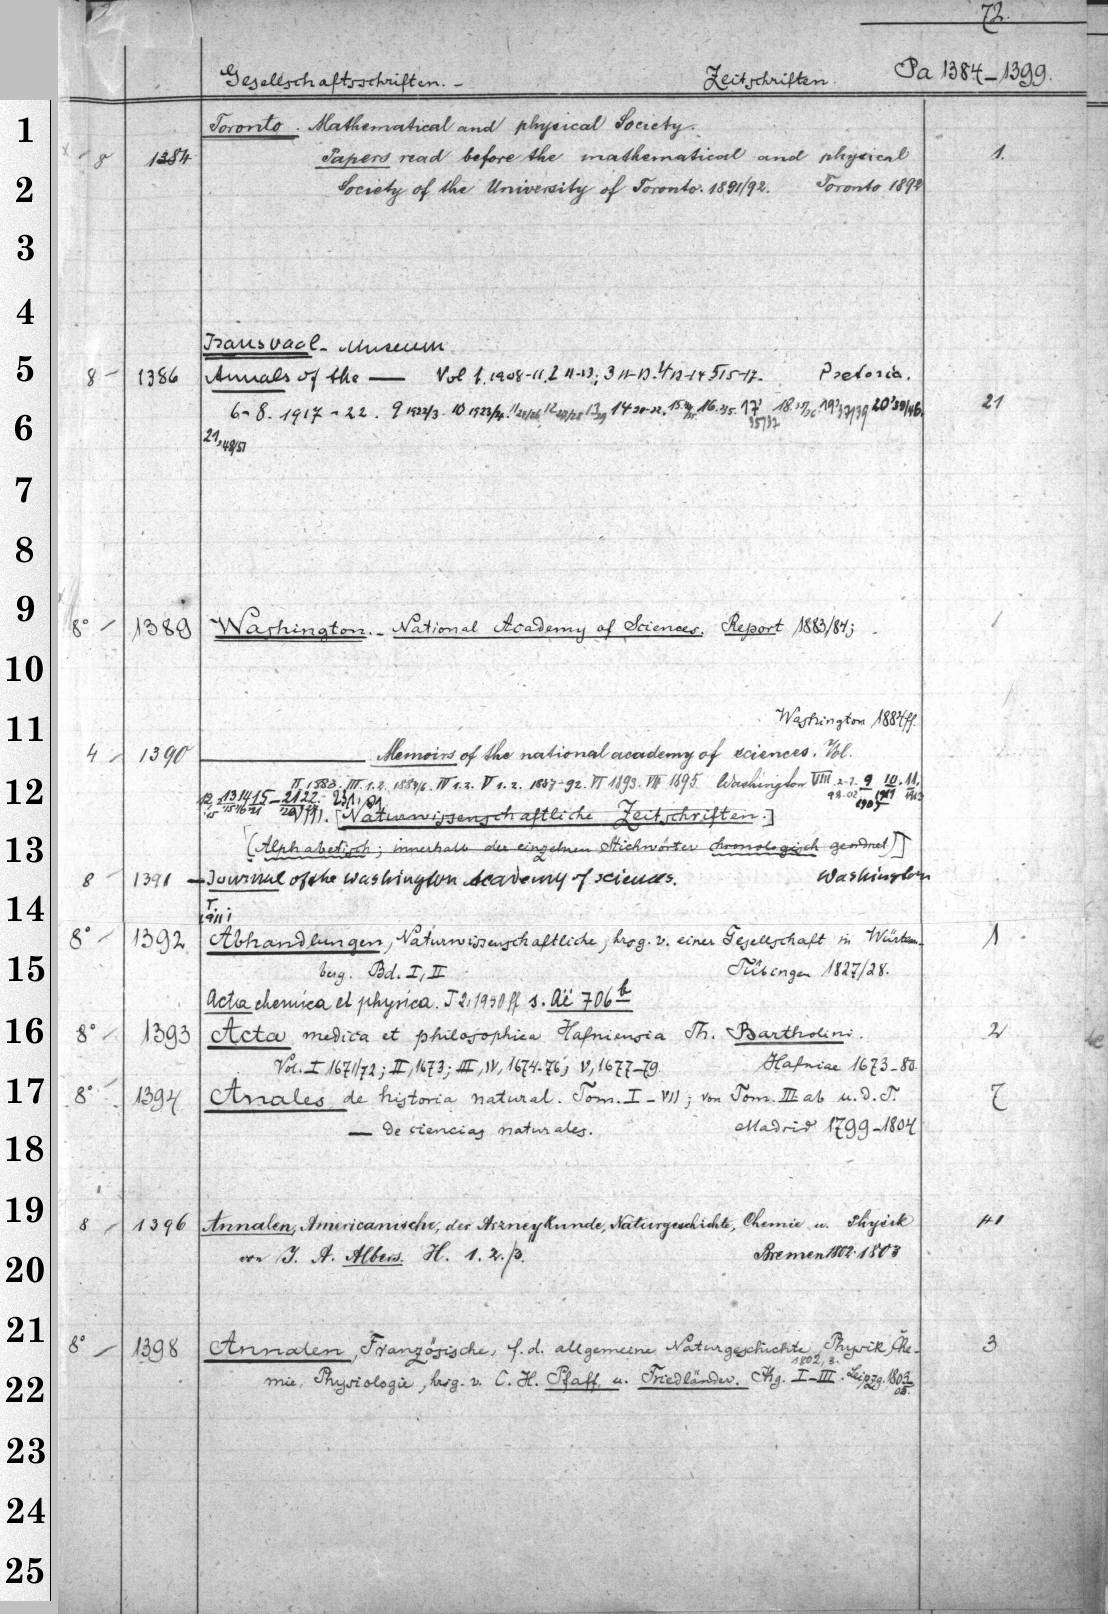 72.
Gesellschaftsschriften. - Zeitschriften. Pa 1384-1399.
1
Toronto. Mathematical and physical Society.
8 1384 Papers read before the mathematical and physical 1.
2
Society of the University of Toronto. 1891/92. Toronto 1892
3
4
Transvaal- Museum
5
8 - 1386 Annals of the — Vol 1. 1908-11. 2 11-13; 3 11-13. 4 13-14 5 15-17. Pretoria.
6-8. 1917-22. 9 1922/3. 10 1923/4. 14 17 18 19 37/39 20 39/46. 21
6
35/37
21, 48/51
7
8
9
8° - 1389 Washington. - National Academy of Sciences. Report 1883/84; 1
10
11
Washington 1884ff.
4 - 1390 ——— Memoirs of the national academy of sciences. Vol.
12
II 1883. III. 1.2. 1884/6. IV 1.2. V 1.2. 1887-92. VI 1893. VII 1895 Washington VIII 9 10. 11.
VIII. [Naturwissenschaftliche Zeitschriften.]
13
[(Alphabetisch; innerhalb der einzelnen Stichwörter chronologisch geordnet)]
8 1391 - Journal of the Washington Academy of sciences. Washington
14
1. 1911
8° - 1392 Abhandlungen, Naturwissenschaftliche, hrsg. v. einer Gesellschaft in Würtem- 1
15
berg. Bd. I, II Tübingen 1827/28.
Acta chemica et physica. T 2, 1930 ff s. Aë 706b
16
8° - 1393 Acta medica et philosophica Hafniensia Th. Bartholini. 2
Vol. I 1671/72; II, 1673; III, IV, 1674-76; V, 1677-79. Hafniae 1673-80.
17
8° 1394 Anales de historia natural. Tom. I-VII; von Tom. III ab u. d. T. 7
— de ciencias naturales. Madrid 1799-1804
18
19
8 - 1396 Annalen, Americanische, der Arzneykunde, Naturgeschichte, Chemie u. Physik
von J. A. Albers. H. 1. 2. 3. Bremen 1802-1803
20
21
8° - 1398 Annalen, Französische, f. d. allgemeine Naturgeschichte, Physik, Che- 3
1802, 3.
22
mie, Physiologie, hrsg. v. C. H. Pfaff u. Friedländer. Jhg. I-III. Leipzg. 1803
05.
23
24
25